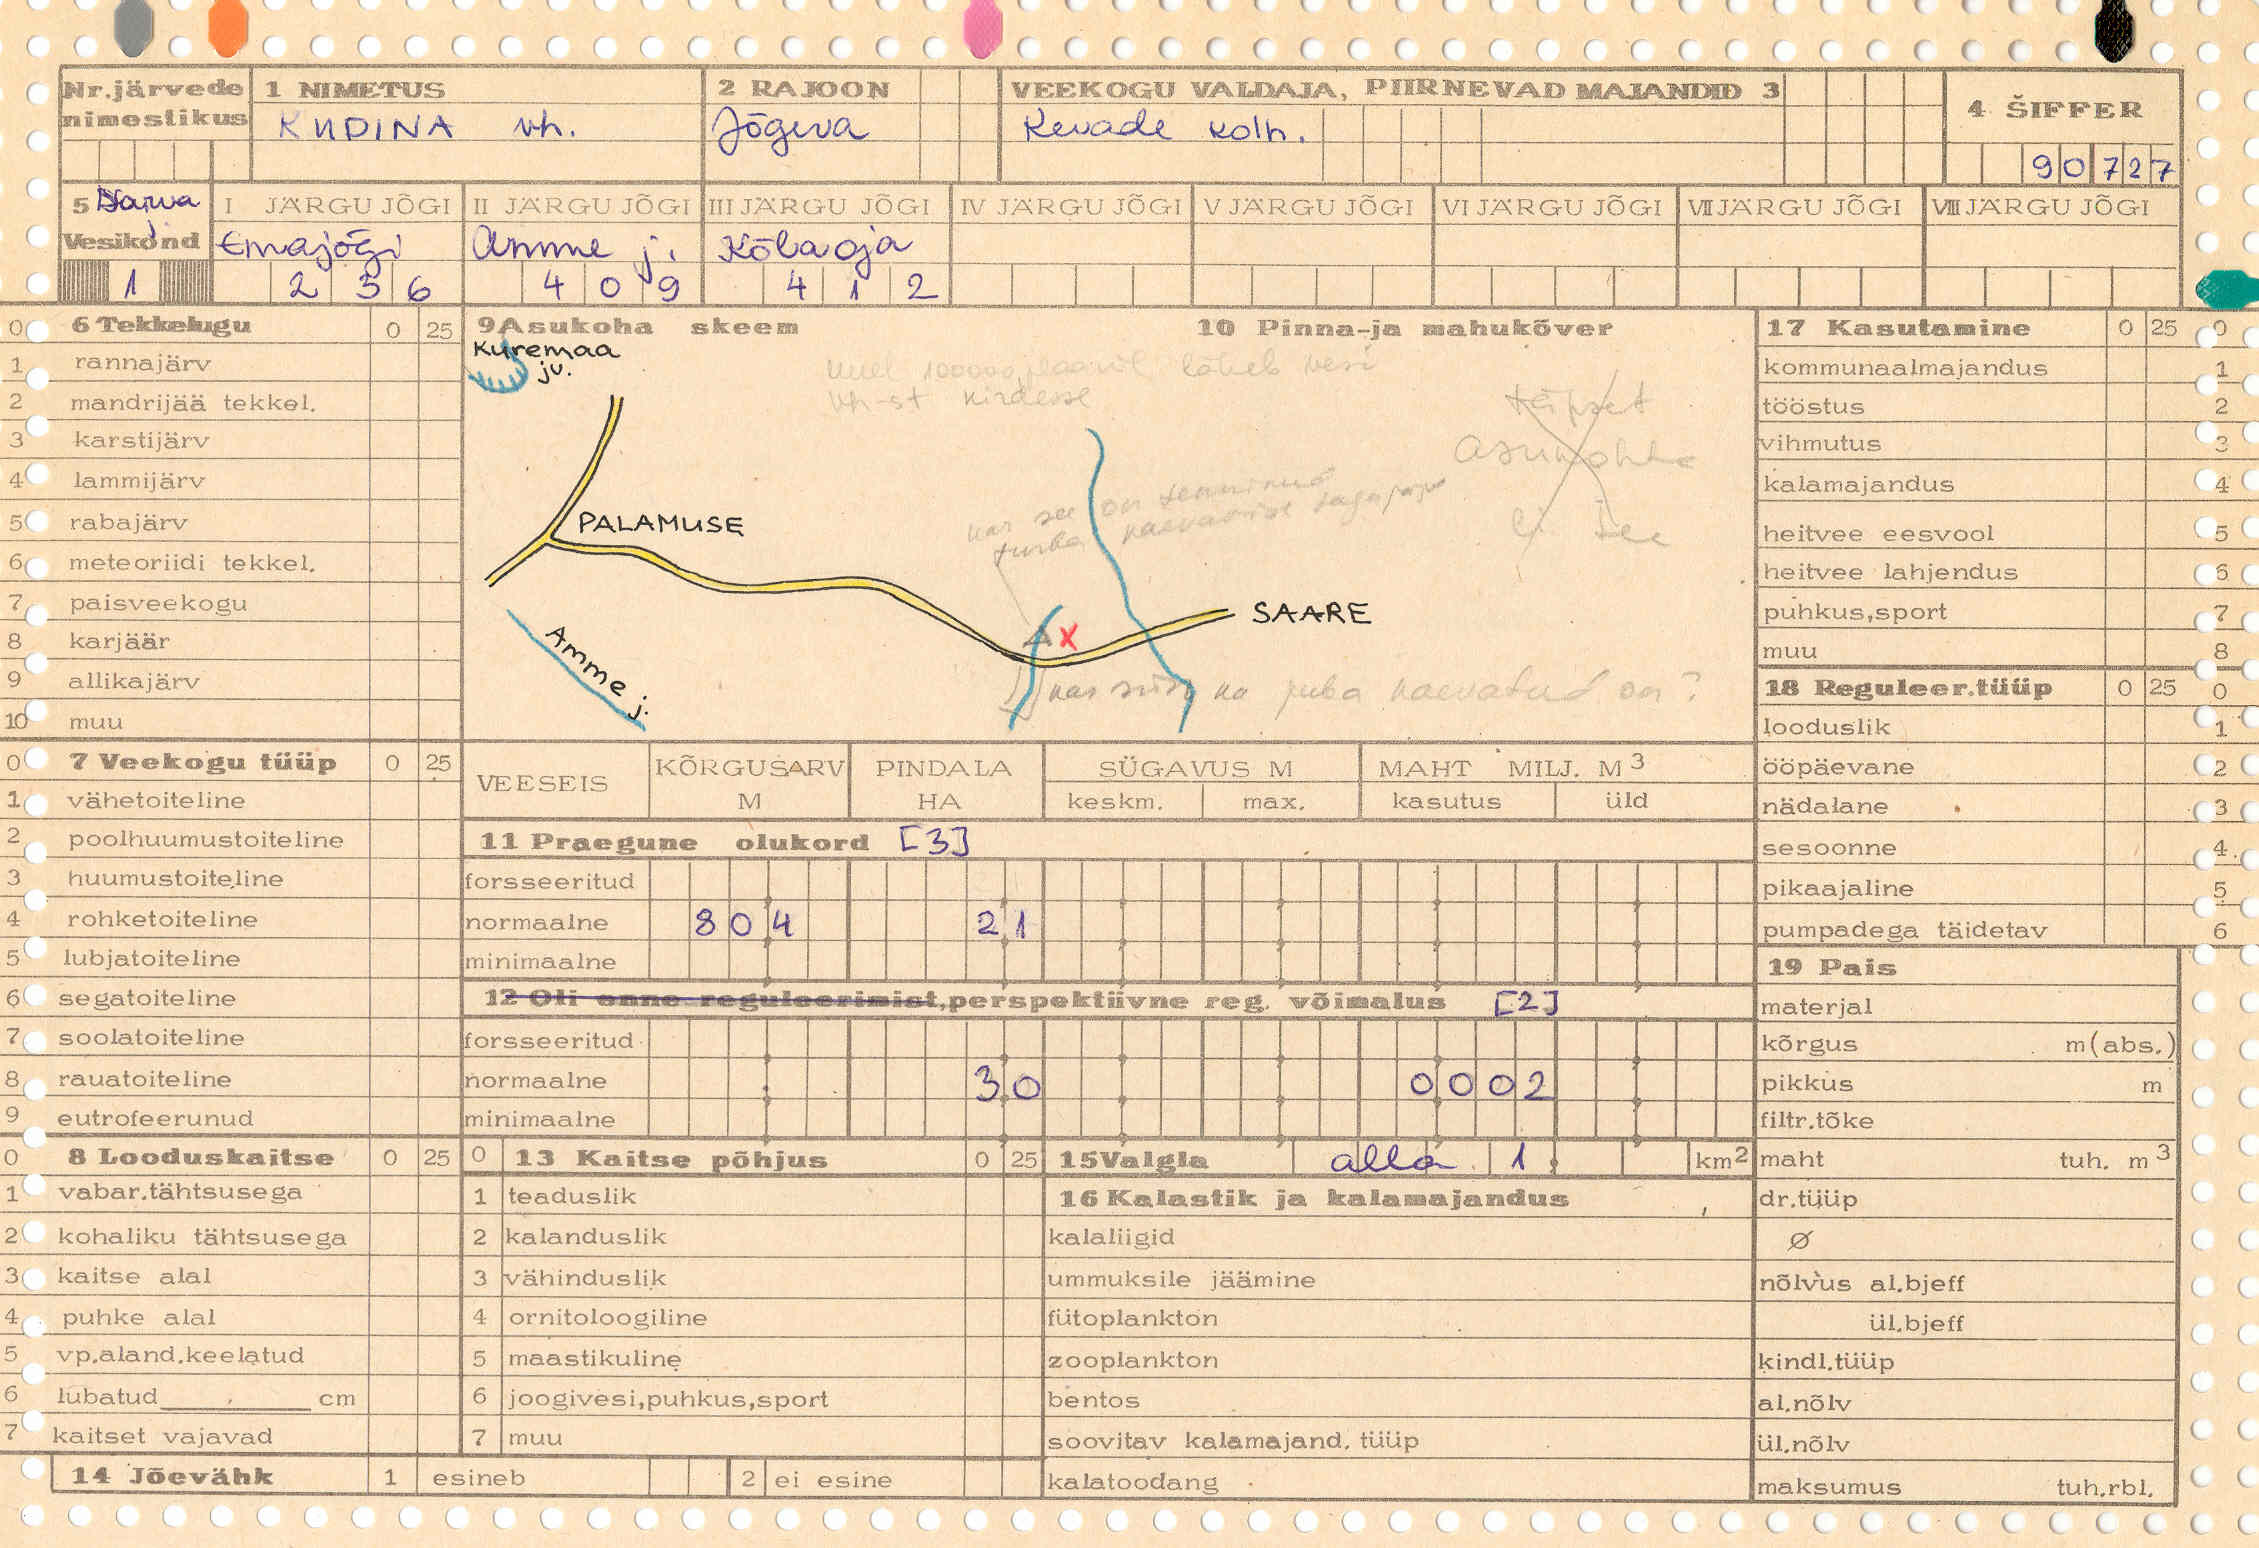 Nr. järvede nimestikus
1 NIMETUS
KUDINA vh.
2 RAJOON
Jõgeva
VEEKOGU VALDAJA, PIIRNEVAD MAJANDID 3
Kevade kolh.
4 ŠIFFER
90727
5 Narva j.
Vesikond
1
I JÄRGU JÕGI
Emajõgi
2 3 6
II JÄRGU JÕGI
Amme j.
4 0 9
III JÄRGU JÕGI
Kõlaoja
4 1 2
IV JÄRGU JÕGI
V JÄRGU JÕGI
VI JÄRGU JÕGI
VII JÄRGU JÕGI
VIII JÄRGU JÕGI
0 6 Tekkelugu 0 25
1 rannajärv
2 mandrijää tekkel.
3 karstijärv
4 lammijärv
5 rabajärv
6 meteoriidi tekkel.
7 paisveekogu
8 karjäär
9 allikajärv
10 muu
0 7 Veekogu tüüp 0 25
1 vähetoiteline
2 poolhuumustoiteline
3 huumustoiteline
4 rohketoiteline
5 lubjatoiteline
6 segatoiteline
7 soolatoiteline
8 rauatoiteline
9 eutrofeerunud
0 8 Looduskaitse 0 25
1 vabar.tähtsusega
2 kohaliku tähtsusega
3 kaitse alal
4 puhke alal
5 vp.aland.keelatud
6 lubatud cm
7 kaitset vajavad
14 Jõevähk 1 esineb 2 ei esine
9 Asukoha skeem 10 Pinna-ja mahukõver
Kuremaa jv.
100000 läheb vesi
vh-st kirdesse
Täpset
asukohta
ei
PALAMUSE
kas see on
turba
SAARE
X
Amme j.
kaevatud on?
VEESEIS
KÕRGUSARV M
PINDALA HA
SÜGAVUS M
keskm. max.
MAHT MILJ. M3
kasutus üld
11 Praegune olukord [3]
forsseeritud
normaalne 804 21
minimaalne
12 Oli enne reguleerimist, perspektiivne reg. võimalus [2]
forsseeritud
normaalne 30 0002
minimaalne
0 13 Kaitse põhjus 0 25
1 teaduslik
2 kalanduslik
3 vähinduslik
4 ornitoloogiline
5 maastikuline
6 joogivesi,puhkus,sport
7 muu
15 Valgla alla 1 km2
16 Kalastik ja kalamajandus
kalaliigid
ummuksile jäämine
fütoplankton
zooplankton
bentos
soovitav kalamajand. tüüp
kalatoodang
17 Kasutamine 0 25 0
kommunaalmajandus 1
tööstus 2
vihmutus 3
kalamajandus 4
heitvee eesvool 5
heitvee lahjendus 6
puhkus,sport 7
muu 8
18 Reguleer.tüüp 0 25 0
looduslik 1
ööpäevane 2
nädalane 3
sesoonne 4
pikaajaline 5
pumpadega täidetav 6
19 Pais
materjal
kõrgus m(abs.)
pikkus m
filtr.tõke
maht tuh. m3
dr.tüüp
Ø
nõlvus al.bjeff
ül.bjeff
kindl.tüüp
al.nõlv
ül.nõlv
maksumus tuh.rbl.